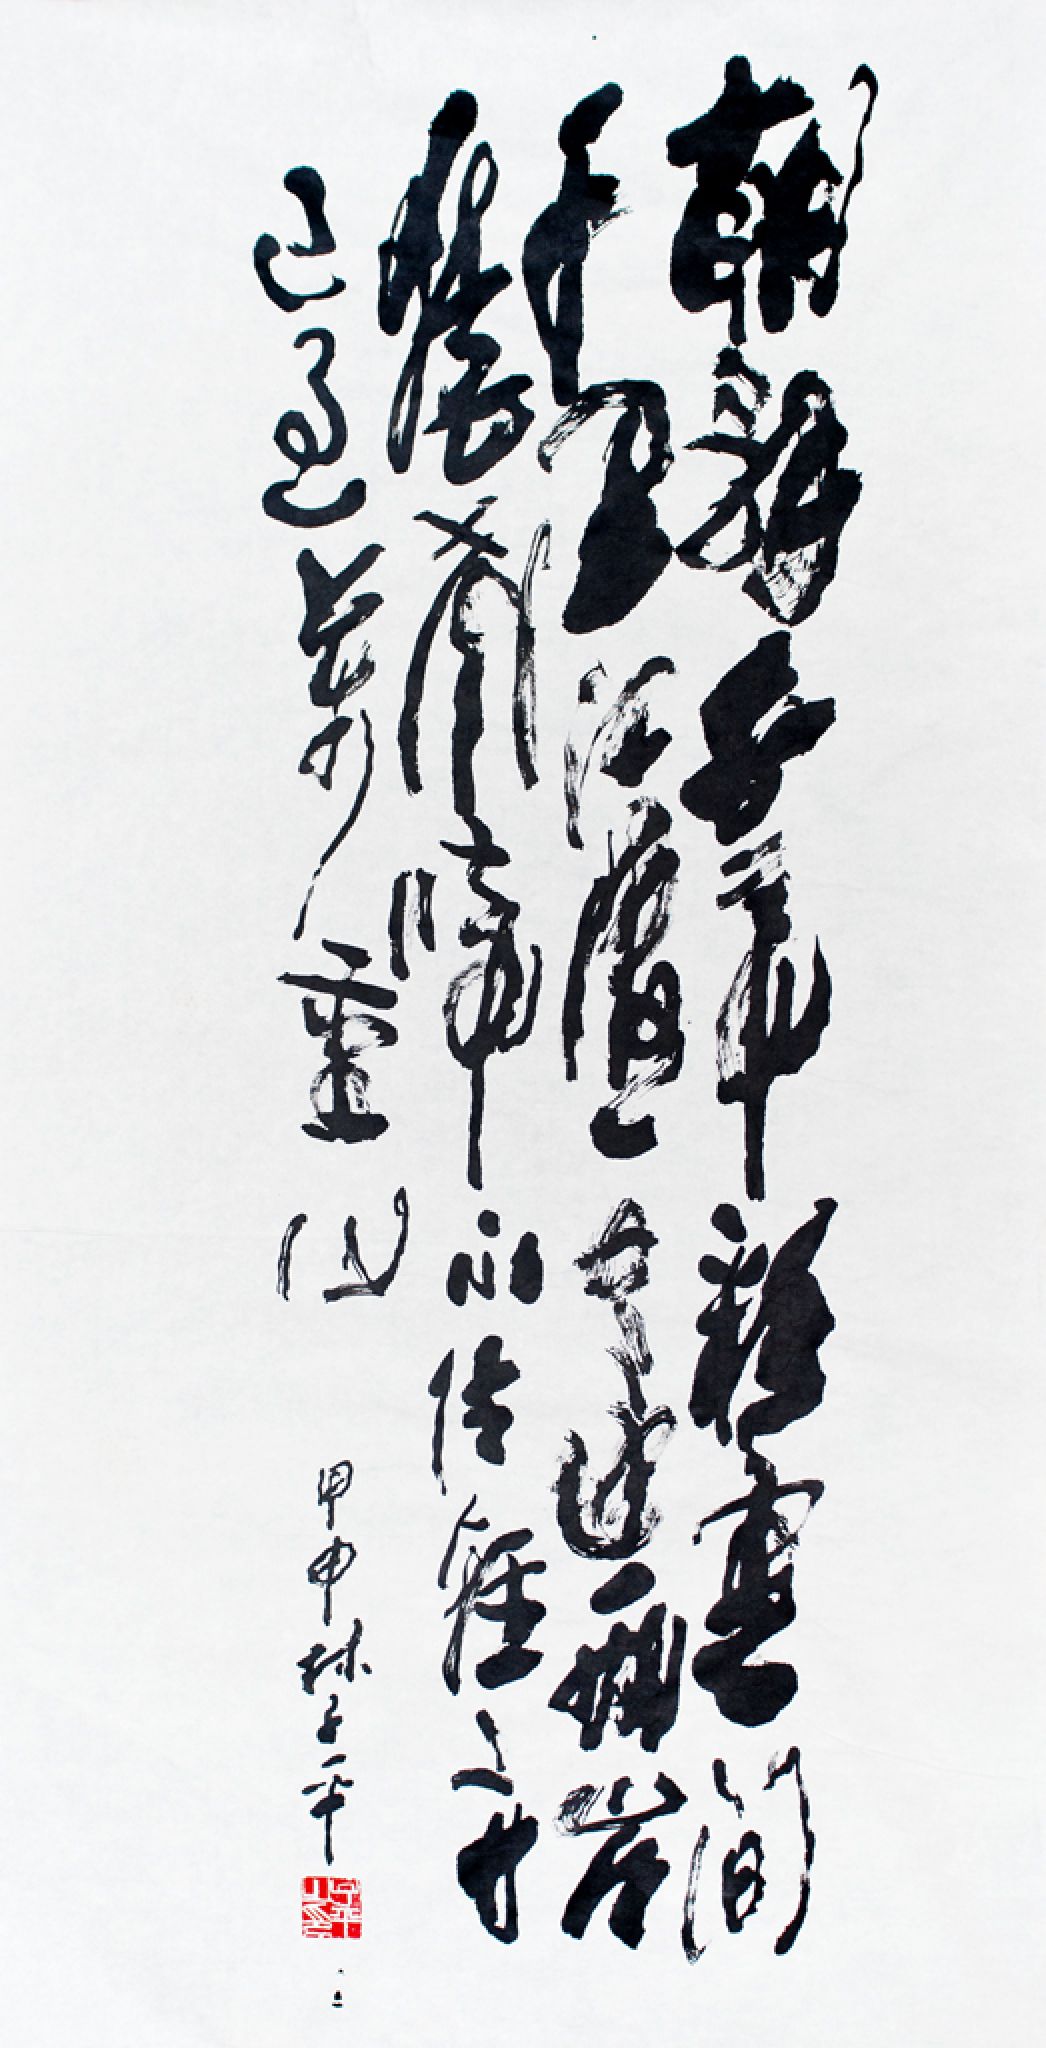 朝辭白帝彩雲間
千里江陵一日還兩岸
猿聲啼不住輕舟
已過萬重山
甲申林子平